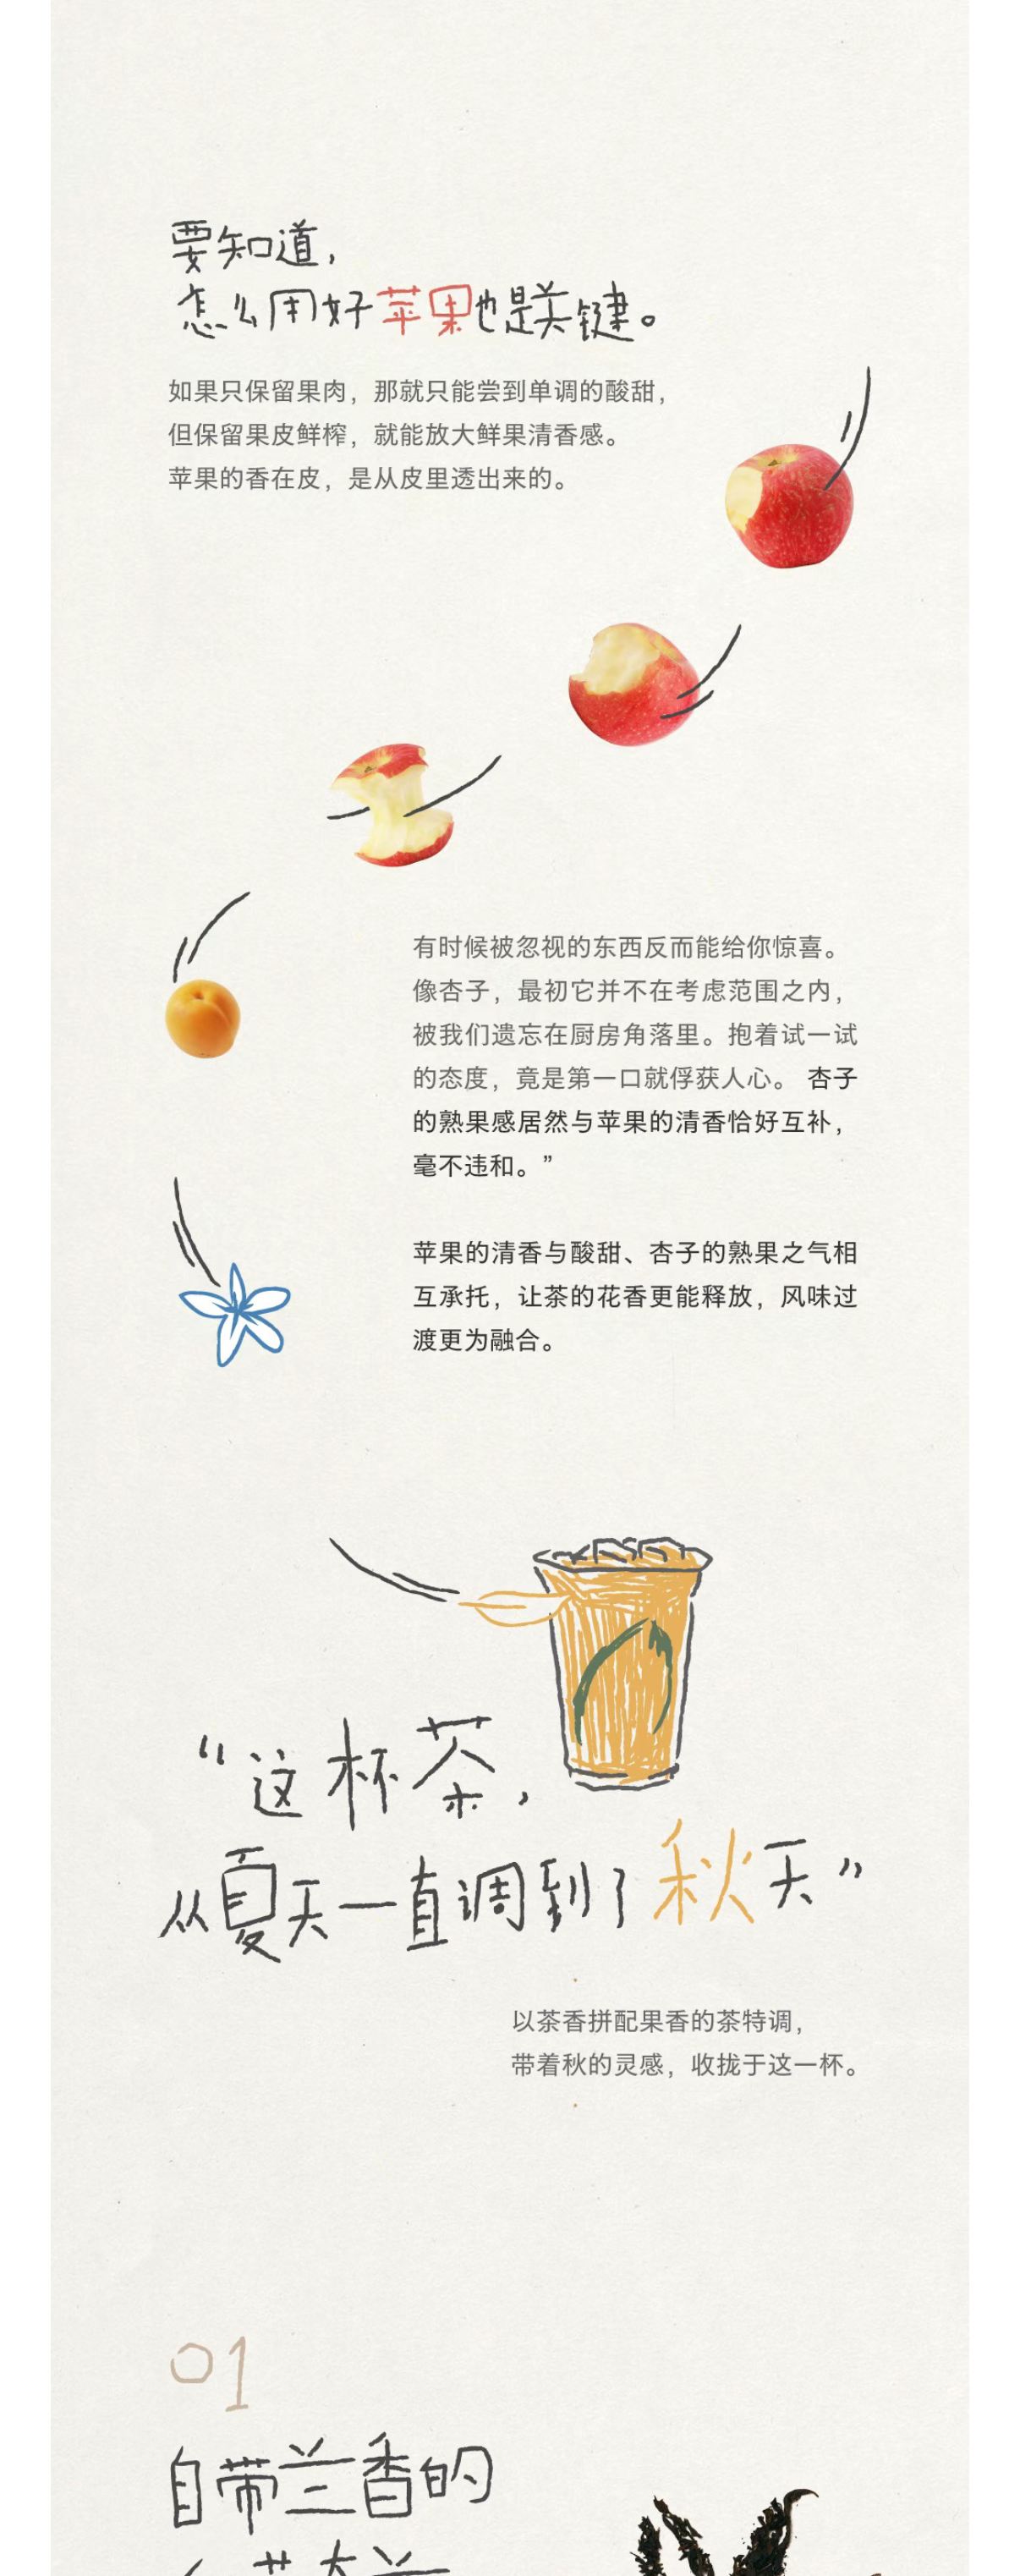 要知道,
怎么用好苹果也是关键。
如果只保留果肉，那就只能尝到单调的酸甜，
但保留果皮鲜榨，就能放大鲜果清香感。
苹果的香在皮，是从皮里透出来的。
有时候被忽视的东西反而能给你惊喜。
像杏子，最初它并不在考虑范围之内，
被我们遗忘在厨房角落里。抱着试一试
的态度，竟是第一口就俘获人心。 杏子
的熟果感居然与苹果的清香恰好互补，
毫不违和。”
苹果的清香与酸甜、杏子的熟果之气相
互承托，让茶的花香更能释放，风味过
渡更为融合。
“这杯茶,
从夏天一直调到了秋天”
以茶香拼配果香的茶特调，
带着秋的灵感，收拢于这一杯。
01
自带兰香的